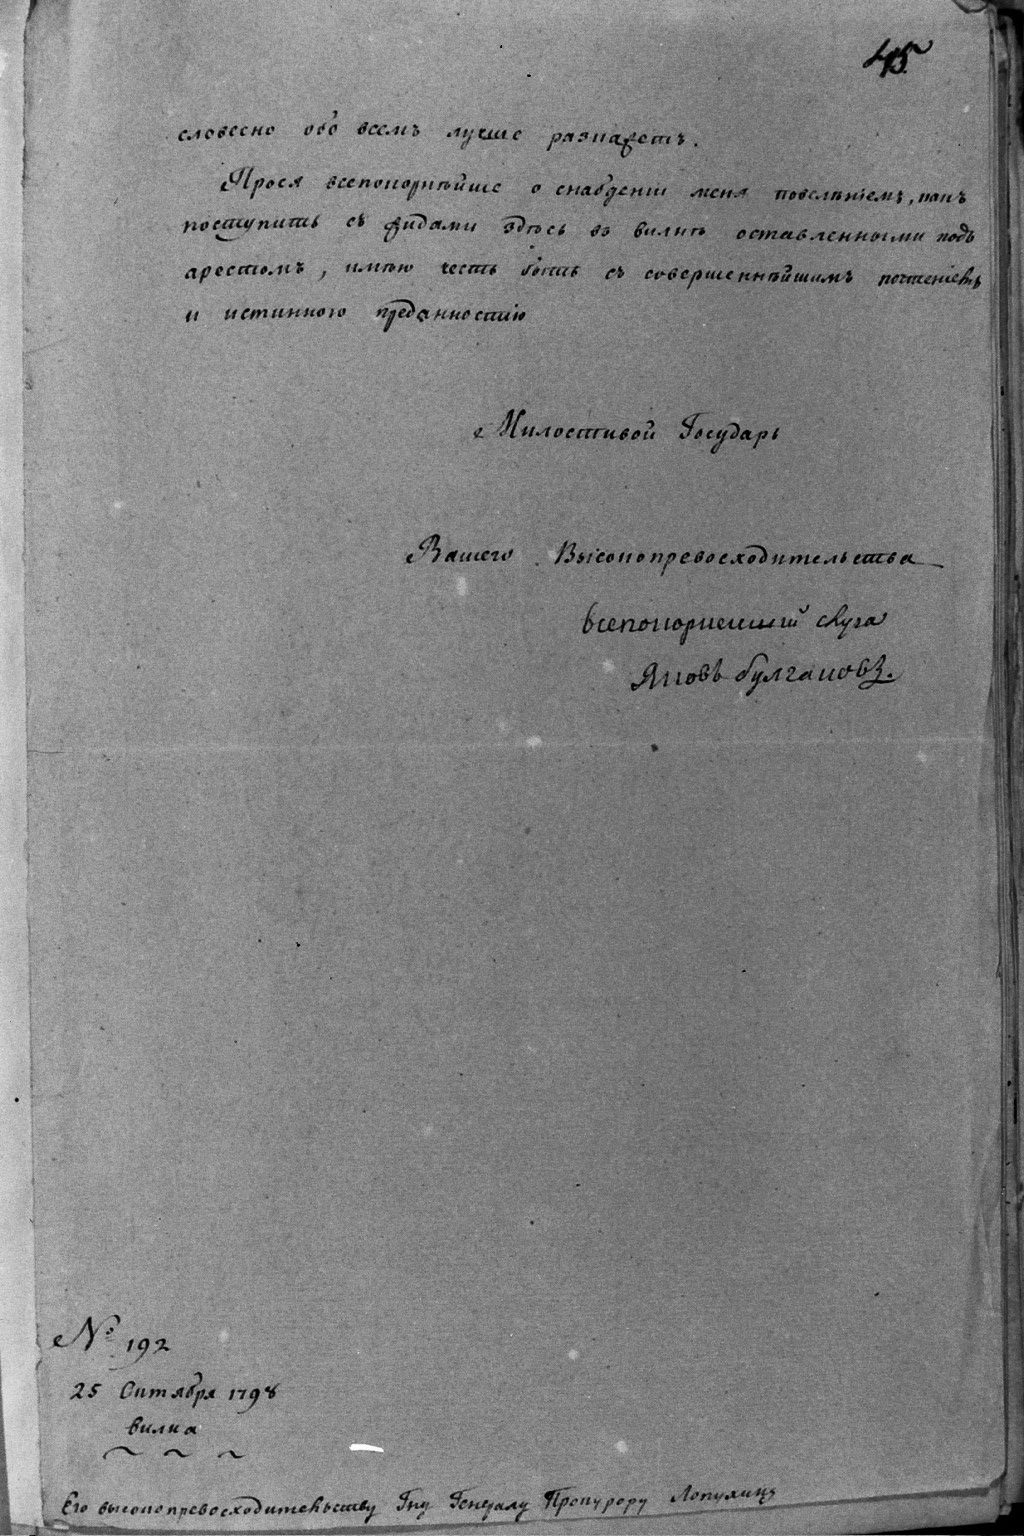 45.
словесно обо всемъ лучше разкажетъ.
Прося всепокорнѣйше о снабденіи меня повелѣніемъ, какъ
поступить съ жидами здѣсь въ вилнѣ оставленными подъ
арестомъ, имѣю честь быть съ совершеннѣйшимъ почтеніемъ
и истинною преданностію
Милостивой Государь
Вашего Высокопревосходительства
всепокорнейший слуга
Яковъ булгаковъ.
№ 192
25 Октября 1798
вилна
Его высокопревосходительству Гну Генералу Прокурору Лопухину